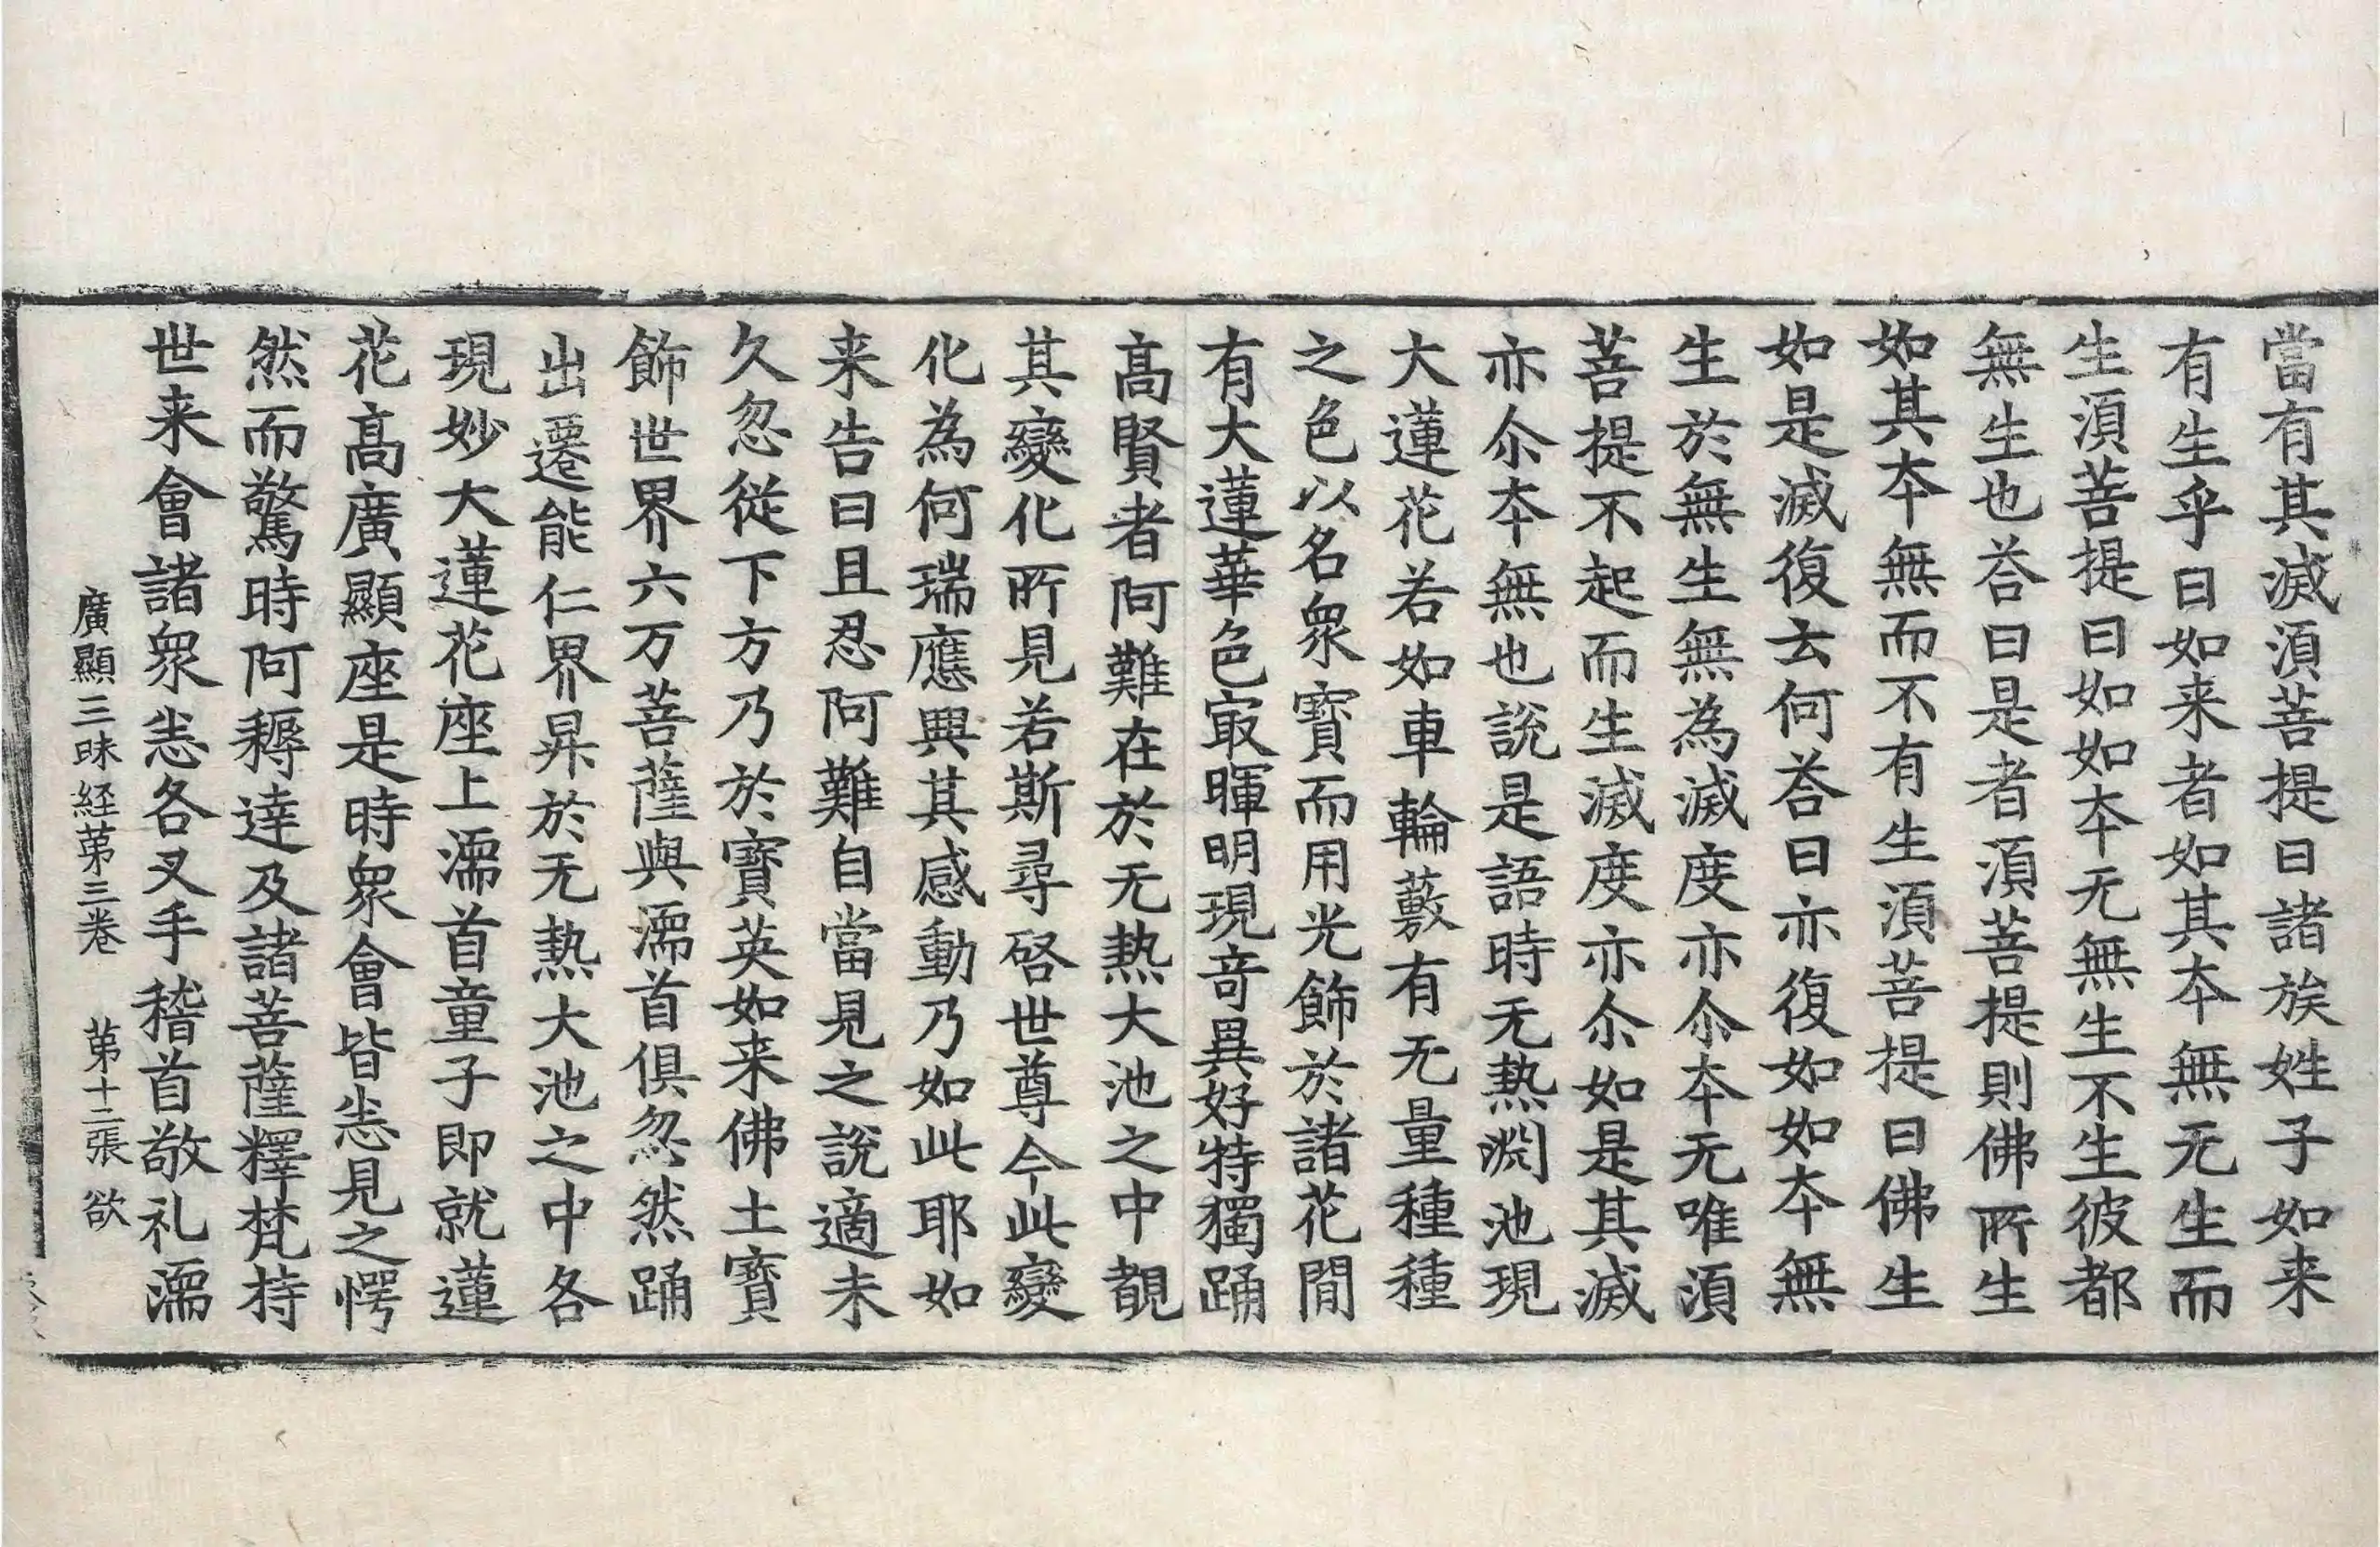 當有其滅湏菩提曰諸族姓子如来
有生乎曰如来者如其夲無无生而
生湏菩提曰如如夲无無生不生彼都
無生也荅曰是者湏菩提則佛所生
如其夲無而不有生湏菩提曰佛生
如是滅復云何荅曰亦復如如夲無
生於無生無為滅度亦尒夲无唯湏
菩提不起而生滅度亦尒如是其滅
亦尒夲無也說是語時无熱淵池現
大蓮花若如車輪藪有无量種種
之色以名衆寶而用光飾於諸花間
有大蓮華色㝡暉明現竒異好特獨踊
髙賢者阿難在於无熱大池之中覩
其變化所見若斯尋啓世尊今此變
化為何瑞應興其感動乃如此耶如
来告曰且忍阿難自當見之說適未
久忽從下方乃於寶英如来佛土寶
飾世界六万菩薩與濡首俱忽然踊
出遷能仁界昇於无熱大池之中各
現妙大蓮花座上濡首童子即就蓮
花髙廣顯座是時衆會皆㤙見之愕
然而驚時阿耨達及諸菩薩釋梵持
世来會諸衆㤙各叉手稽首敬礼濡
廣顯三昧経苐三卷 苐十二張 欲